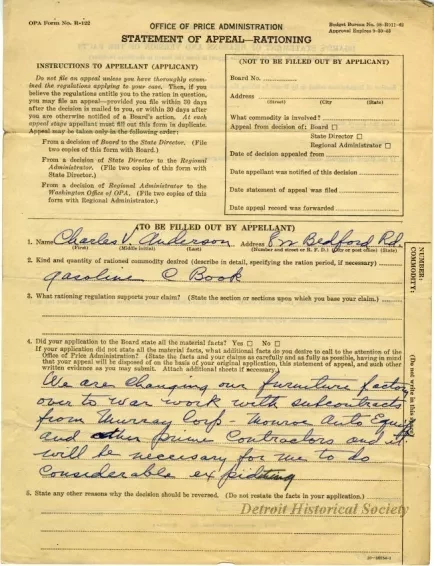 OPA Form No. R-122
OFFICE OF PRICE ADMINISTRATION
Approval Expires
STATEMENT OF APPEAL—RATIONING
INSTRUCTIONS TO APPELLANT (APPLICANT)
Do not file an appeal unless you have thoroughly exam-
ined the regulations applying to your case. Then, if you
believe the regulations entitle you to the ration in question,
you may file an appeal—provided you file within 30 days
after the decision is mailed to you, or within 30 days after
you are otherwise notified of a Board's action. At each
appeal stage appellant must fill out this form in duplicate.
Appeal may be taken only in the following order:
From a decision of Board to the State Director. (File
two copies of this form with Board.)
From a decision of State Director to the Regional
Administrator. (File two copies of this form with
State Director.)
From a decision of Regional Administrator to the
Washington Office of OPA. (File two copies of this
form with Regional Administrator.)
(NOT TO BE FILLED OUT BY APPLICANT)
Board No.
Address
(Street) (City) (State)
What commodity is involved?
Appeal from decision of: Board
State Director
Regional Administrator
Date of decision appealed from
Date appellant was notified of this decision
Date statement of appeal was filed
Date appeal record was forwarded
(TO BE FILLED OUT BY APPELLANT)
1. Name Charles V. Anderson Address Bedford Rd.
(First) (Middle initial) (Last) (Number and street or R. F. D.) (City or post office) (State)
2. Kind and quantity of rationed commodity desired (describe in detail, specifying the ration period, if necessary)
gasoline C Book
3. What rationing regulation supports your claim? (State the section or sections upon which you base your claim.)
4. Did your application to the Board state all the material facts? Yes No
If your application did not state all the material facts, what additional facts do you desire to call to the attention of the
Office of Price Administration? (State the facts and your claims as carefully and as fully as possible, having in mind
that your appeal will be disposed of on the basis of your original application, this statement of appeal, and such other
written evidence as you may submit. Attach additional sheets if necessary.)
We are changing our furniture factory
over to war work with subcontracts
from Murray Corp - Monroe Auto Equip
and other prime Contractors and it
will be necessary for me to do
considerable expiditing
5. State any other reasons why the decision should be reversed. (Do not restate the facts in your application.)
Detroit Historical Society
NUMBER:
COMMODITY:
(Do not write in this